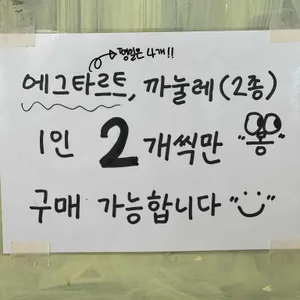 평일은 4개!!
에그타르트, 까눌레(2종)
1인 2개씩만 "봉"
구매 가능합니다 "